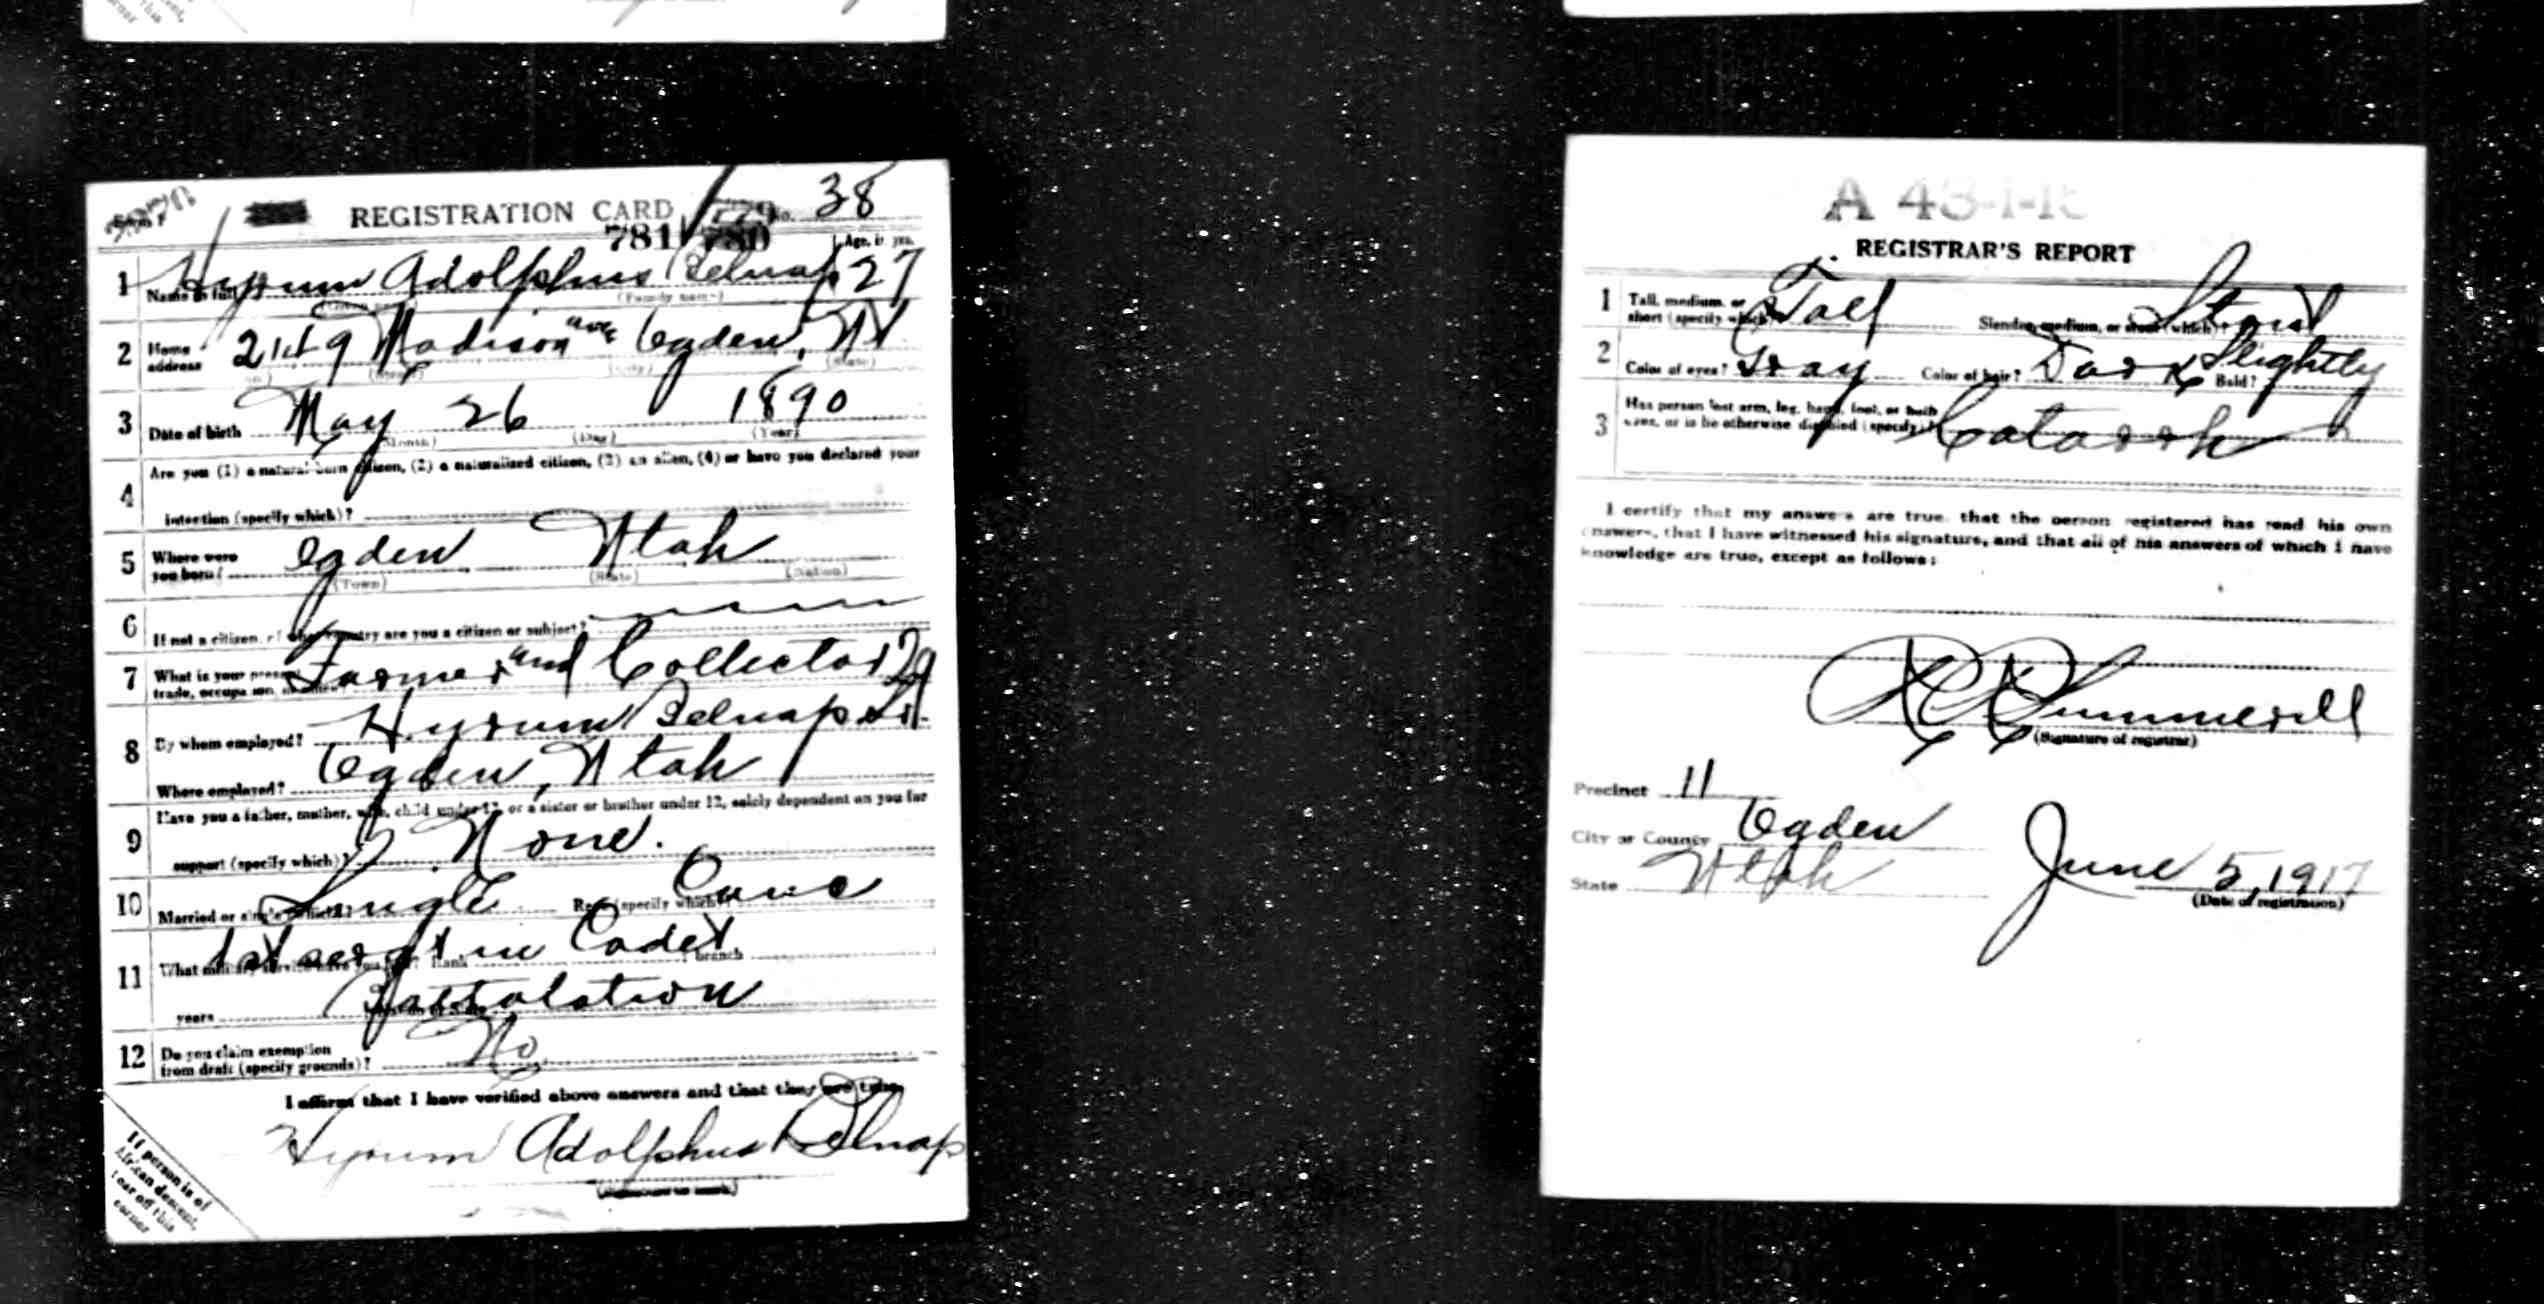 REGISTRATION CARD No. 38
781 780
1 Name in full Hyrum Adolphus Belnap Age, in yrs. 27
(Family name)
2 Home address Madison ave Ogden, Ut
(Street) (City) (State)
3 Date of birth May 26 1890
(Month) (Day) (Year)
4 Are you (1) a natural born citizen, (2) a naturalized citizen, (3) an alien, (4) or have you declared your
intention (specify which)?
5 Where were you born? Ogden Utah
(Town) (State) (Nation)
6 If not a citizen, of what country are you a citizen or subject?
7 What is your present trade, occupation, or office? Farmer and Collector 29
8 By whom employed? Hyrum Belnap Sr.
Where employed? Ogden, Utah
9 Have you a father, mother, wife, child under 12, or a sister or brother under 12, solely dependent on you for
support (specify which)? None.
10 Married or single (which)? Single Race (specify which)? Cauc
11 What military service have you had? Rank 1st sergt in Cadet branch
years Battalation
12 Do you claim exemption from draft (specify grounds)? No
I affirm that I have verified above answers and that they are true.
Hyrum Adolphus Belnap
(Signature or mark)
If person is of
African descent,
tear off this
corner
REGISTRAR'S REPORT
1 Tall, medium, or short (specify which)? Tall Slender, medium, or stout (which)? Stout
2 Color of eyes? Gray Color of hair? Dark Bald? Slightly
3 Has person lost arm, leg, hand, foot, or both
eyes, or is he otherwise disabled (specify)? Catarrh
I certify that my answers are true, that the person registered has read his own
answers, that I have witnessed his signature, and that all of his answers of which I have
knowledge are true, except as follows:
Summerill
(Signature of registrar)
Precinct 11
City or County Ogden
State Utah June 5, 1917
(Date of registration)